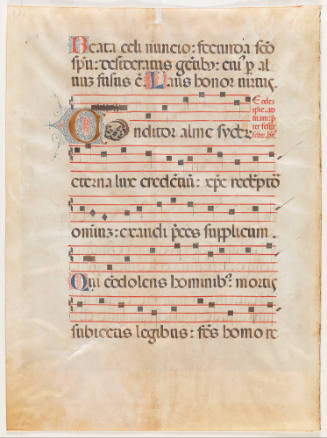 Beata celi nuncio: fecunda sc̄o
spū: desideratus gentib⁹: cui⁹ p̱ al
uum fusus ē. Laus honor uirtus.
Conditor alme syder̄
eterna lux credētiū: xp̄e redēptō
omniuz: exaudi p̄ces supplicum.
Qui cōdolens hominib⁹: mortis
subiectus legibus: fc̄s homo re